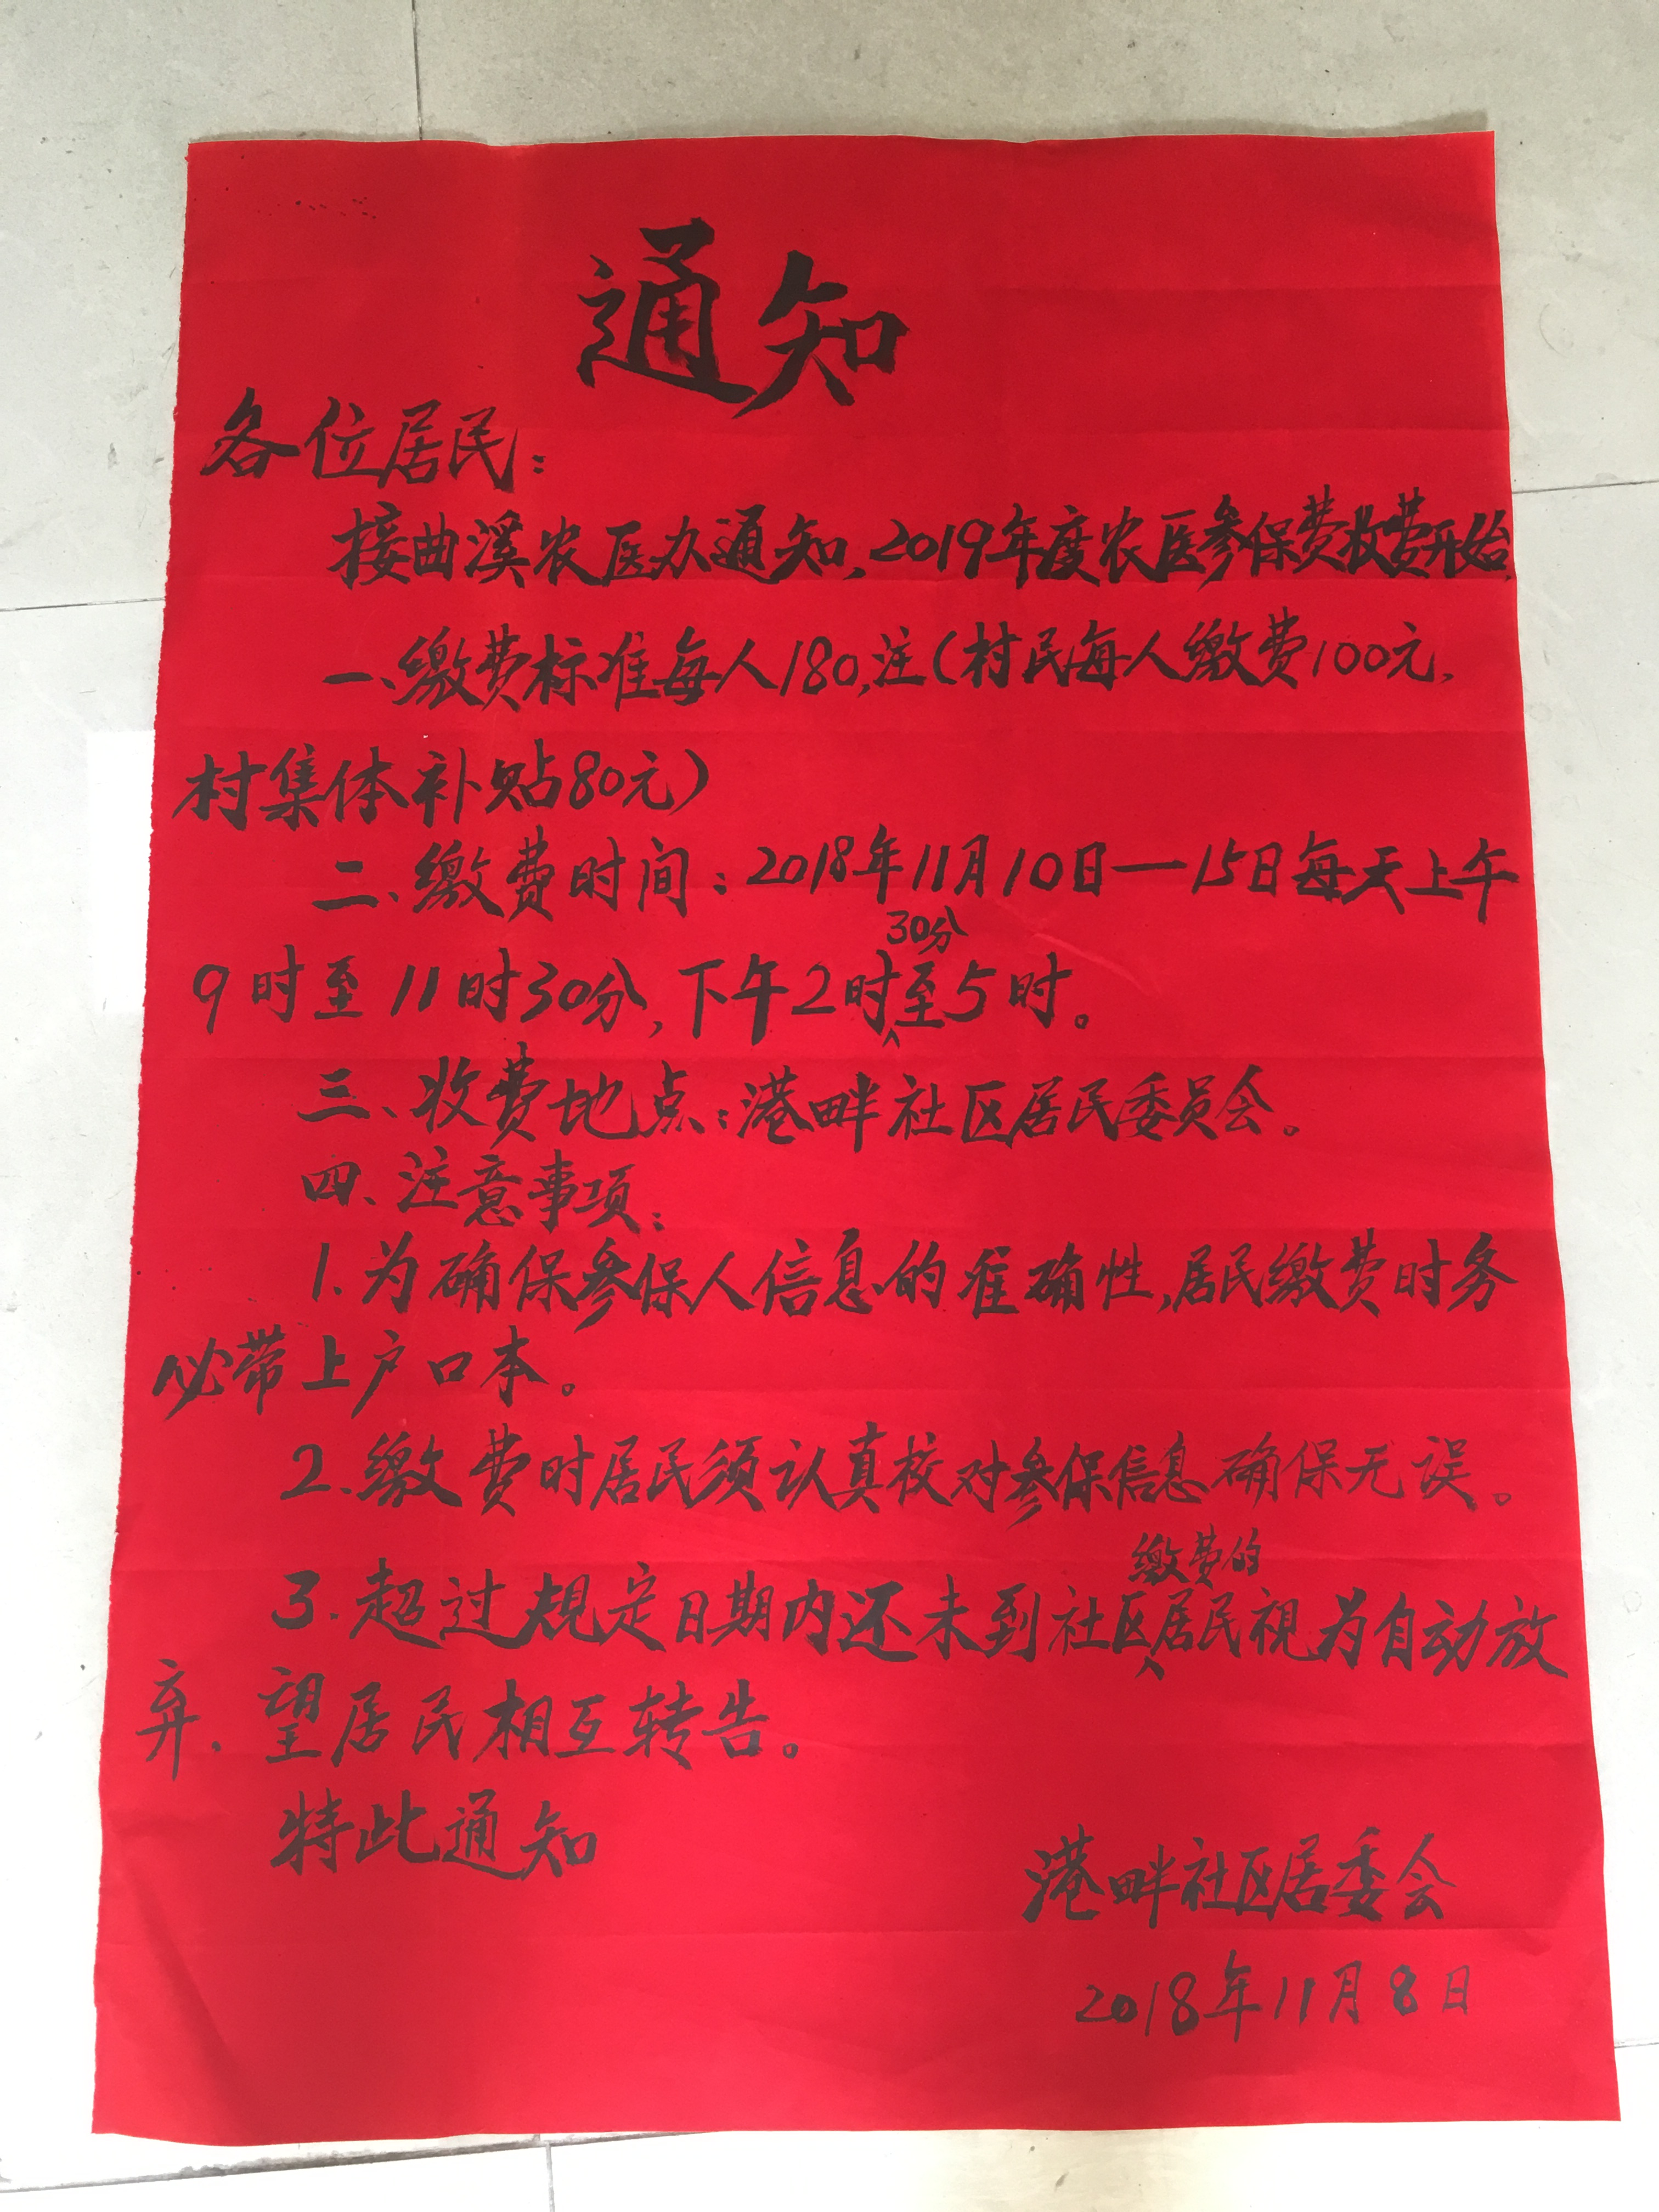 通知
各位居民：
接曲溪农医办通知，2019年度农医参保费收费开始，
一、缴费标准每人180，注（村民每人缴费100元，
村集体补贴80元）
二、缴费时间：2018年11月10日—15日每天上午
9时至11时30分，下午2时30分至5时。
三、收费地点：港畔社区居民委员会。
四、注意事项：
1.为确保参保人信息的准确性，居民缴费时务
必带上户口本。
2.缴费时居民须认真校对参保信息确保无误。
3.超过规定日期内还未到社区缴费的居民视为自动放
弃、望居民相互转告。
特此通知
港畔社区居委会
2018年11月8日